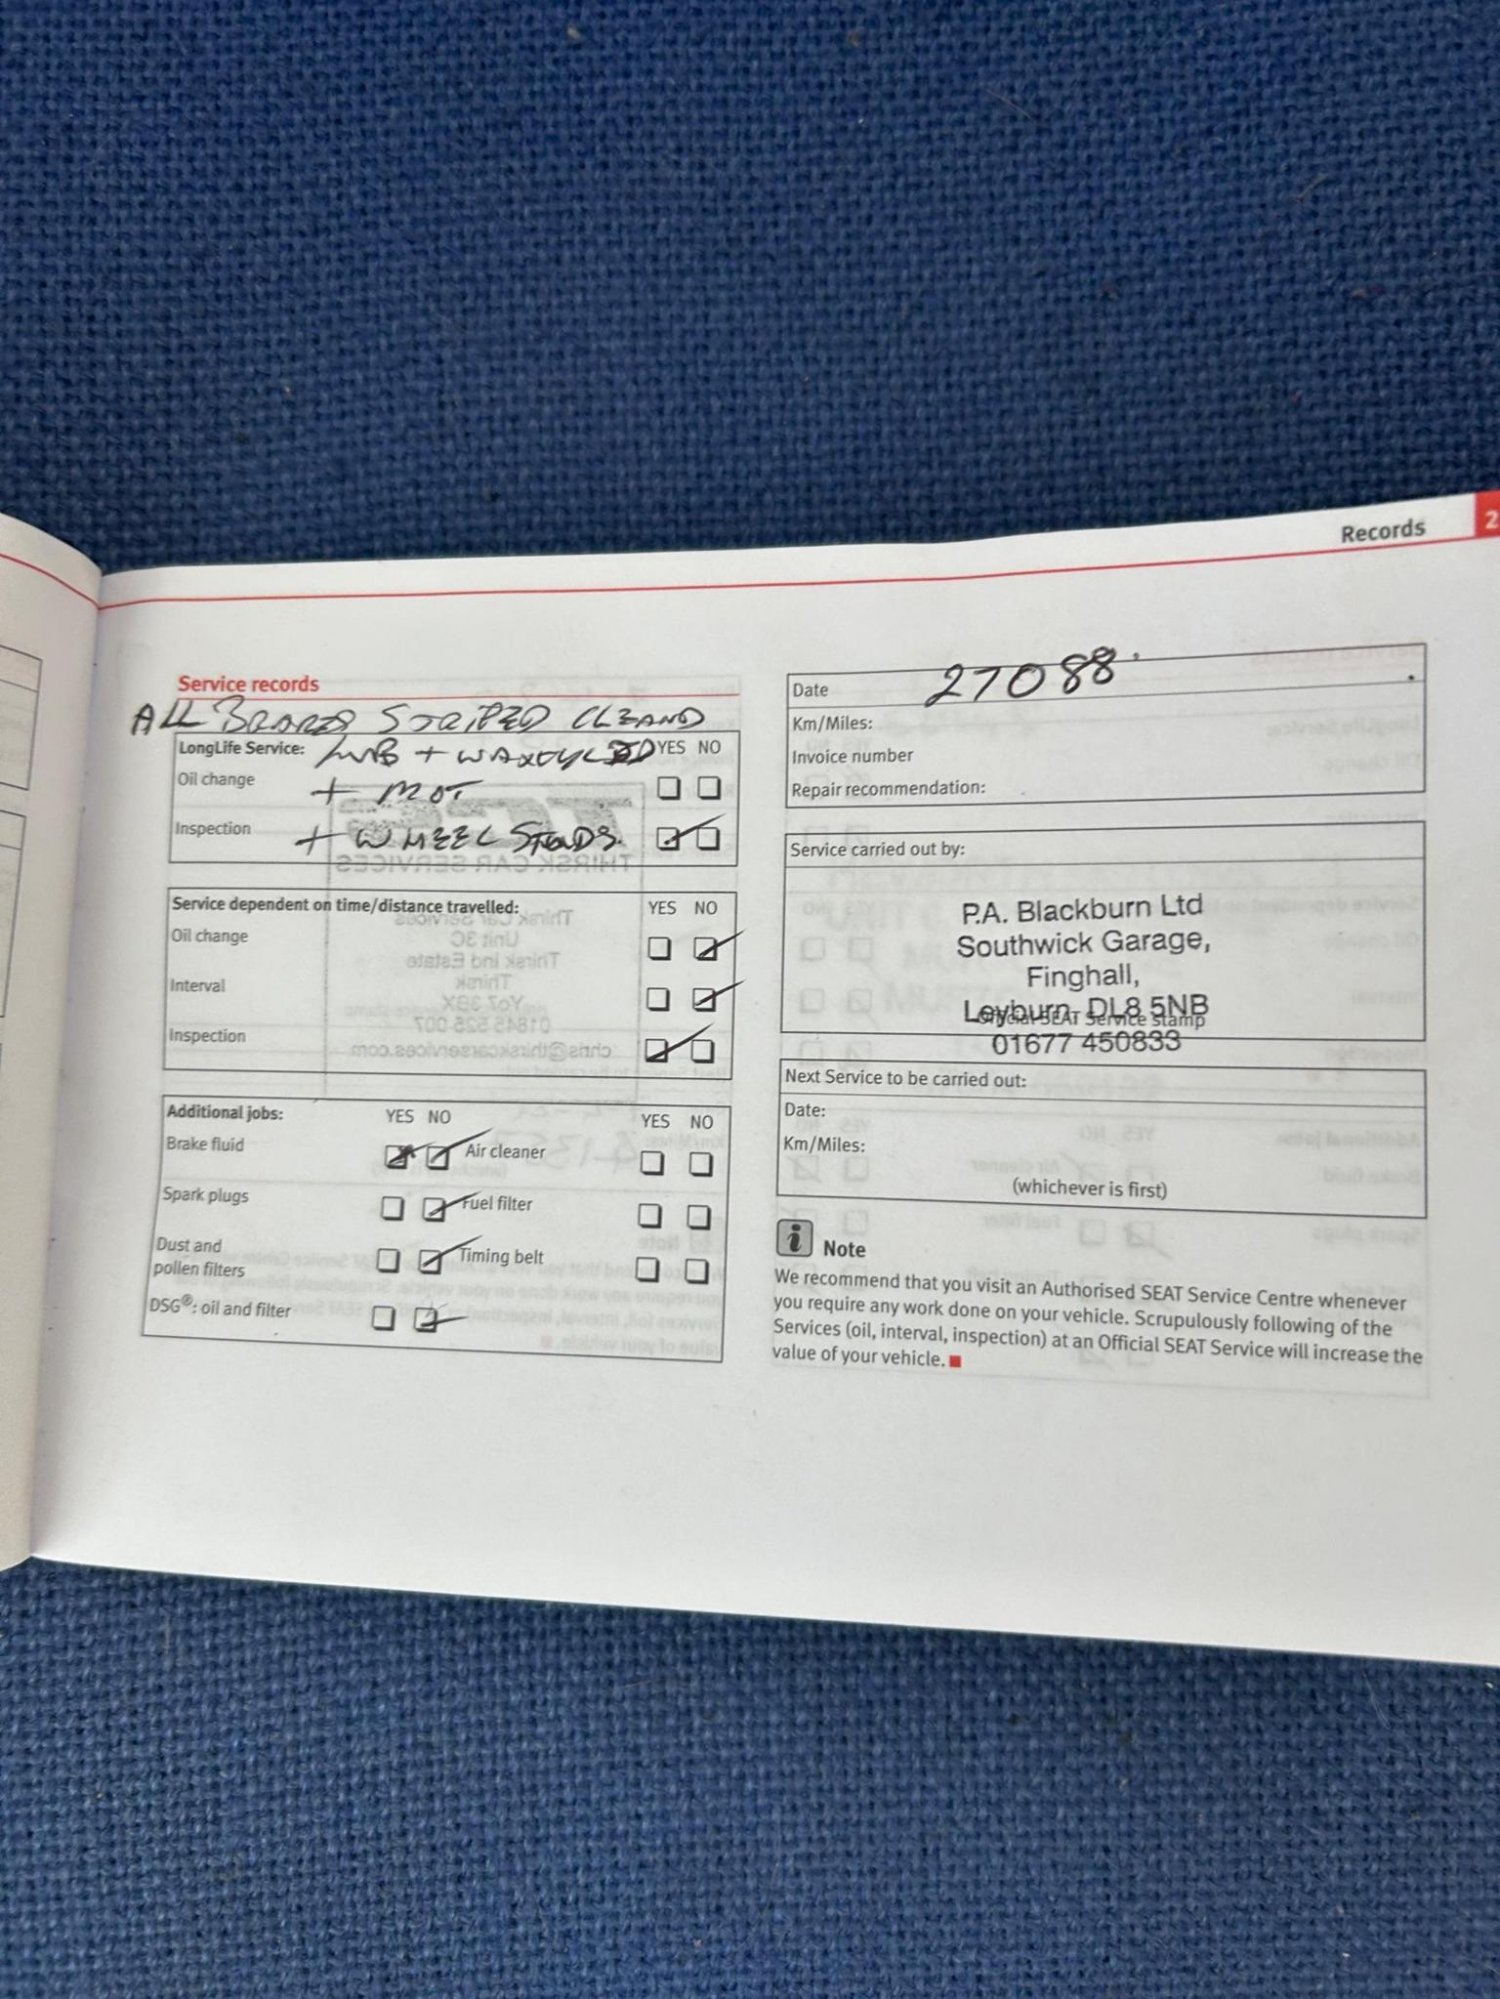 Records
2
Service records
ALL BRAKES STRIPED CLEAND
LongLife Service: LUB + WAXOYLED YES NO
Oil change + MOT
Inspection + WHEEL STUDS.
Service dependent on time/distance travelled: YES NO
Oil change
Interval
Inspection
Additional jobs: YES NO YES NO
Brake fluid Air cleaner
Spark plugs Fuel filter
Dust and
pollen filters Timing belt
DSG®: oil and filter
Date 27088
Km/Miles:
Invoice number
Repair recommendation:
Service carried out by:
P.A. Blackburn Ltd
Southwick Garage,
Finghall,
Leyburn DL8 5NB
Official SEAT Service stamp
01677 450833
Next Service to be carried out:
Date:
Km/Miles:
(whichever is first)
i Note
We recommend that you visit an Authorised SEAT Service Centre whenever
you require any work done on your vehicle. Scrupulously following of the
Services (oil, interval, inspection) at an Official SEAT Service will increase the
value of your vehicle.